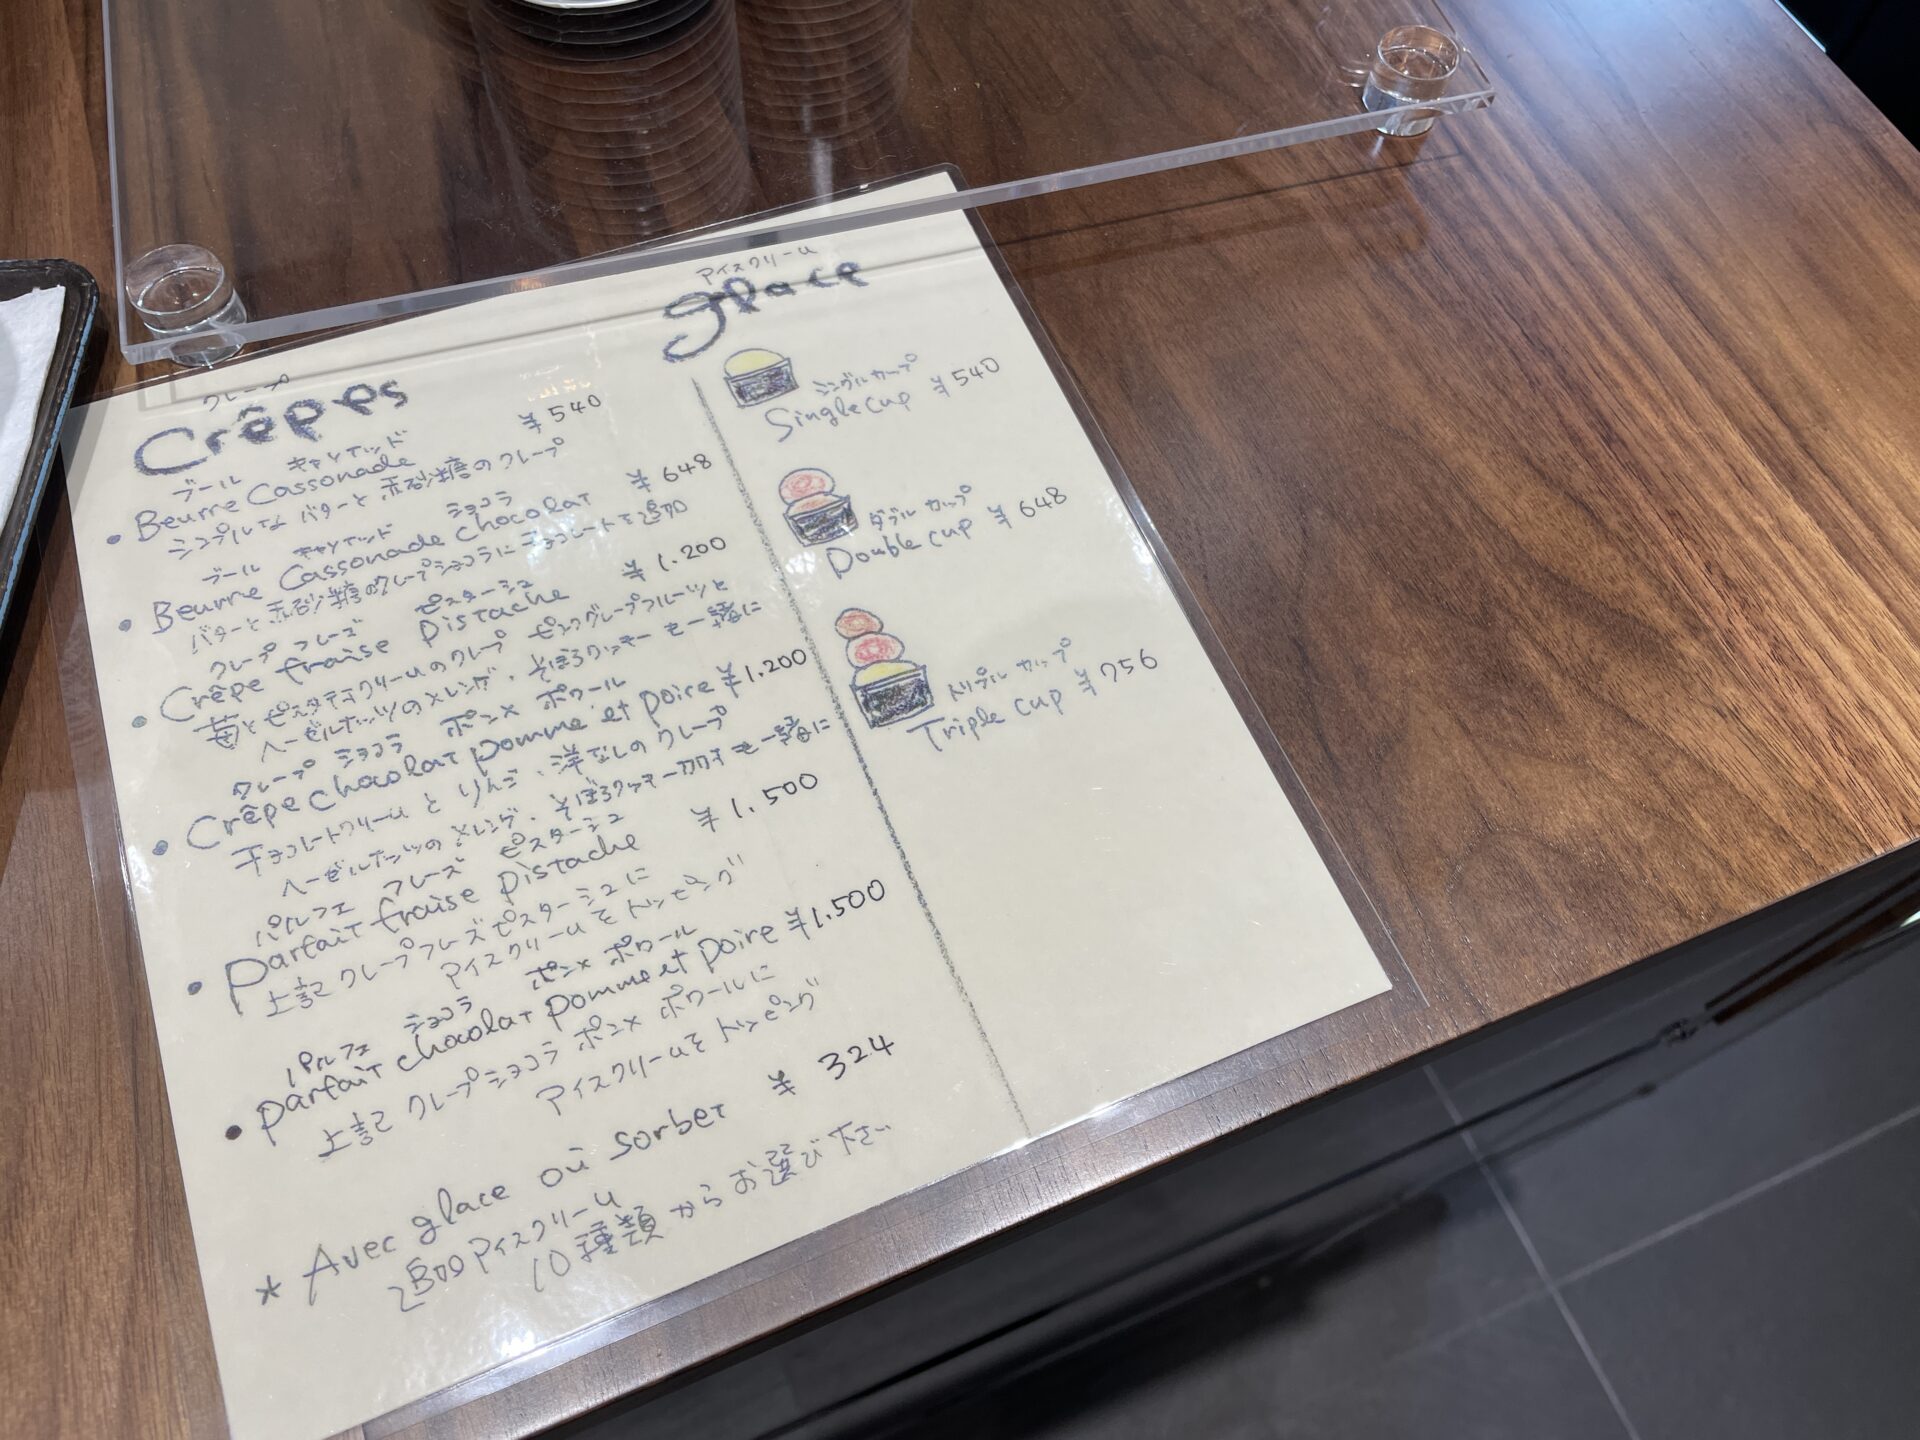 クレープ
Crêpes
ブール キャソナッド
• Beurre Cassonade ¥540
シンプルな バターと 赤砂糖のクレープ
ブール キャソナッド ショコラ
• Beurre Cassonade chocolat ¥648
バターと赤砂糖のクレープショコラにチョコレートを追加
クレープ フレーズ ピスターシュ
• Crêpe fraise pistache ¥1.200
苺とピスタチオクリームのクレープ ピンクグレープフルーツと
ヘーゼルナッツのメレンゲ、そぼろクッキーを一緒に
クレープ ショコラ ポンメ ポワール
• Crêpe chocolat pomme et poire ¥1.200
チョコレートクリームと りんご、洋なしのクレープ
ヘーゼルナッツのメレンゲ、そぼろクッキーカカオを一緒に
パルフェ フレーズ ピスターシュ
• parfait fraise pistache ¥1.500
上記クレープフレーズピスターシュに
アイスクリームをトッピング
パルフェ ショコラ ポンメ ポワール
• parfait chocolat pomme et poire ¥1.500
上記 クレープショコラ ポンメ ポワールに
アイスクリームをトッピング
* Avec glace où sorbet ¥324
追加アイスクリーム
10種類からお選び下さい
アイスクリーム
glace
シングルカップ
Single cup ¥540
ダブルカップ
Double cup ¥648
トリプルカップ
Triple cup ¥756